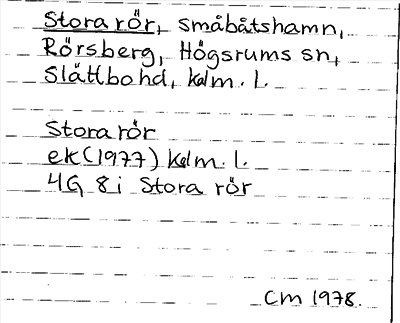 Stora rör, småbåtshamn,
Rörsberg, Högsrums sn,
Slättbo hd, Kalm. l.
Stora rör
ek (1977) Kalm. l.
4G 8i Stora rör
CM 1978.